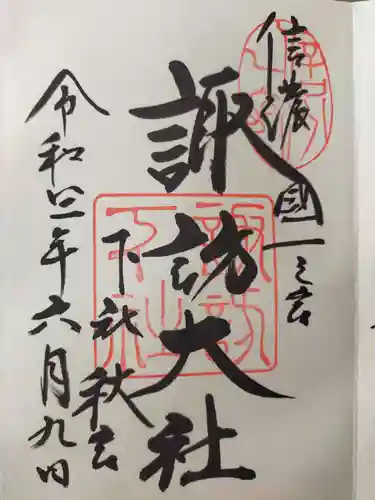 信濃國一之宮
諏訪大社
下社秋宮
令和三年六月九日
諏訪
下社